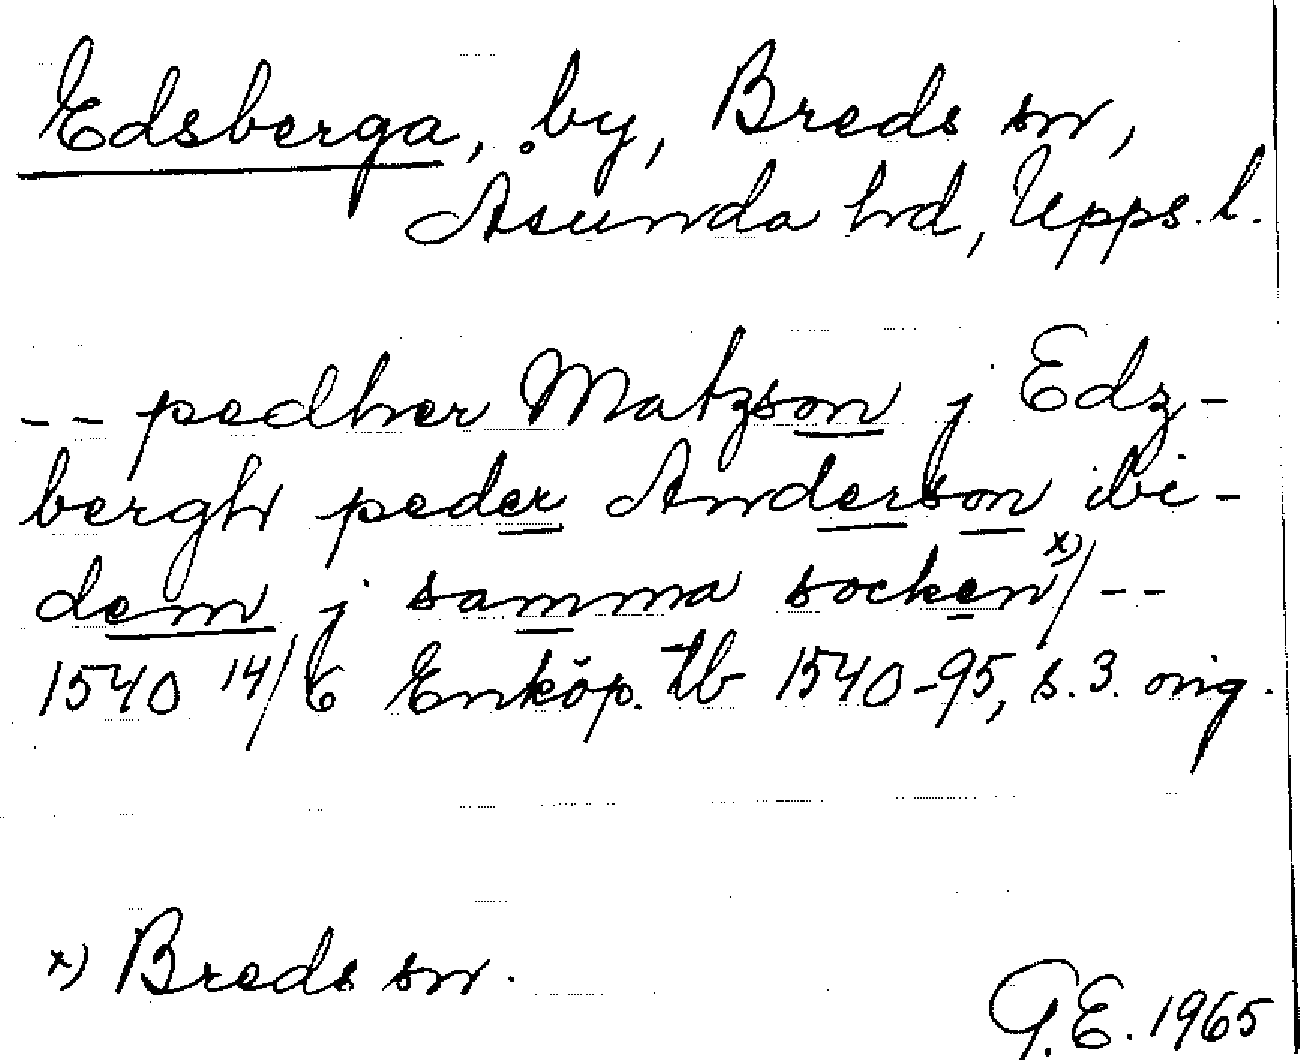 Edsberga, by, Breds sn,
Åsunda hd, Upps. l.
-- pedher Matzson j Edz-
bergh peder Anderson ibi-
dem j samma socken x)/ --
1540 14/6 Enköp. tb 1540-95, s. 3. orig.
x) Breds sn.
G.E. 1965